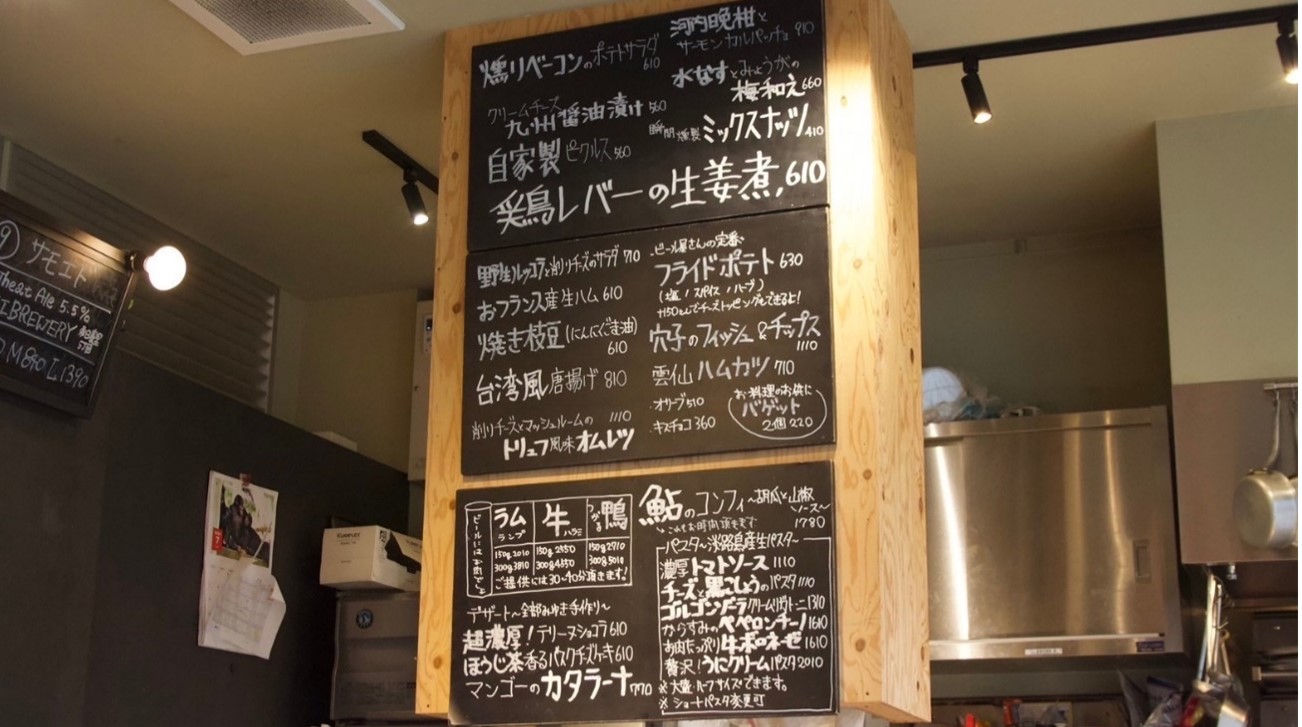 燻りベーコンのポテトサラダ 610
クリームチーズ
九州醤油漬け 560
自家製ピクルス 560
河内晩柑と
サーモンカルパッチョ 910
水なすとみょうがの
梅和え 660
瞬間燻製 ミックスナッツ 410
彩鳥レバーの生姜煮 610
野生ルッコラと削りチーズのサラダ 710
おフランス産生ハム 610
焼き枝豆(にんにくごま油)
610
台湾風唐揚げ 810
削りチーズとマッシュルームの 1110
トリュフ風味オムレツ
ビール屋さんの定番
フライドポテト 630
(塩 / スパイス / ハーブ)
+150えんでチーズトッピングもできるよ!
穴子のフィッシュ&チップス
1110
雲仙ハムカツ 710
オリーブ 510
キスチョコ 360
お料理のお供に
バゲット
2個 220
ビールにはお肉でしょ
ラム ランプ
150g 2010
300g 3810
牛 ハラミ
150g 2350
300g 4350
つがる鴨
150g 2710
300g 5010
ご提供には30~40分頂きます!
デザート~全部みゆき手作り~
超濃厚!テリーヌショコラ 610
ほうじ茶香るバスクチーズケーキ 610
マンゴーのカタラーナ 770
鮎のコンフィ~胡瓜と山椒
ソース~
これもお時間頂きます 1780
パスタ~淡路島産生パスタ~
濃厚トマトソース 1110
チーズと黒こしょうのパスタ 1110
ゴルゴンゾーラクリームリガトーニ 1310
からすみのペペロンチーノ 1610
お肉たっぷり牛ボロネーゼ 1610
贅沢!うにクリームパスタ 2010
※大盛・ハーフサイズできます。
※ショートパスタ変更可
9 サモエド
Wheat Ale 5.5%
BREWERY
M 890 L 1390